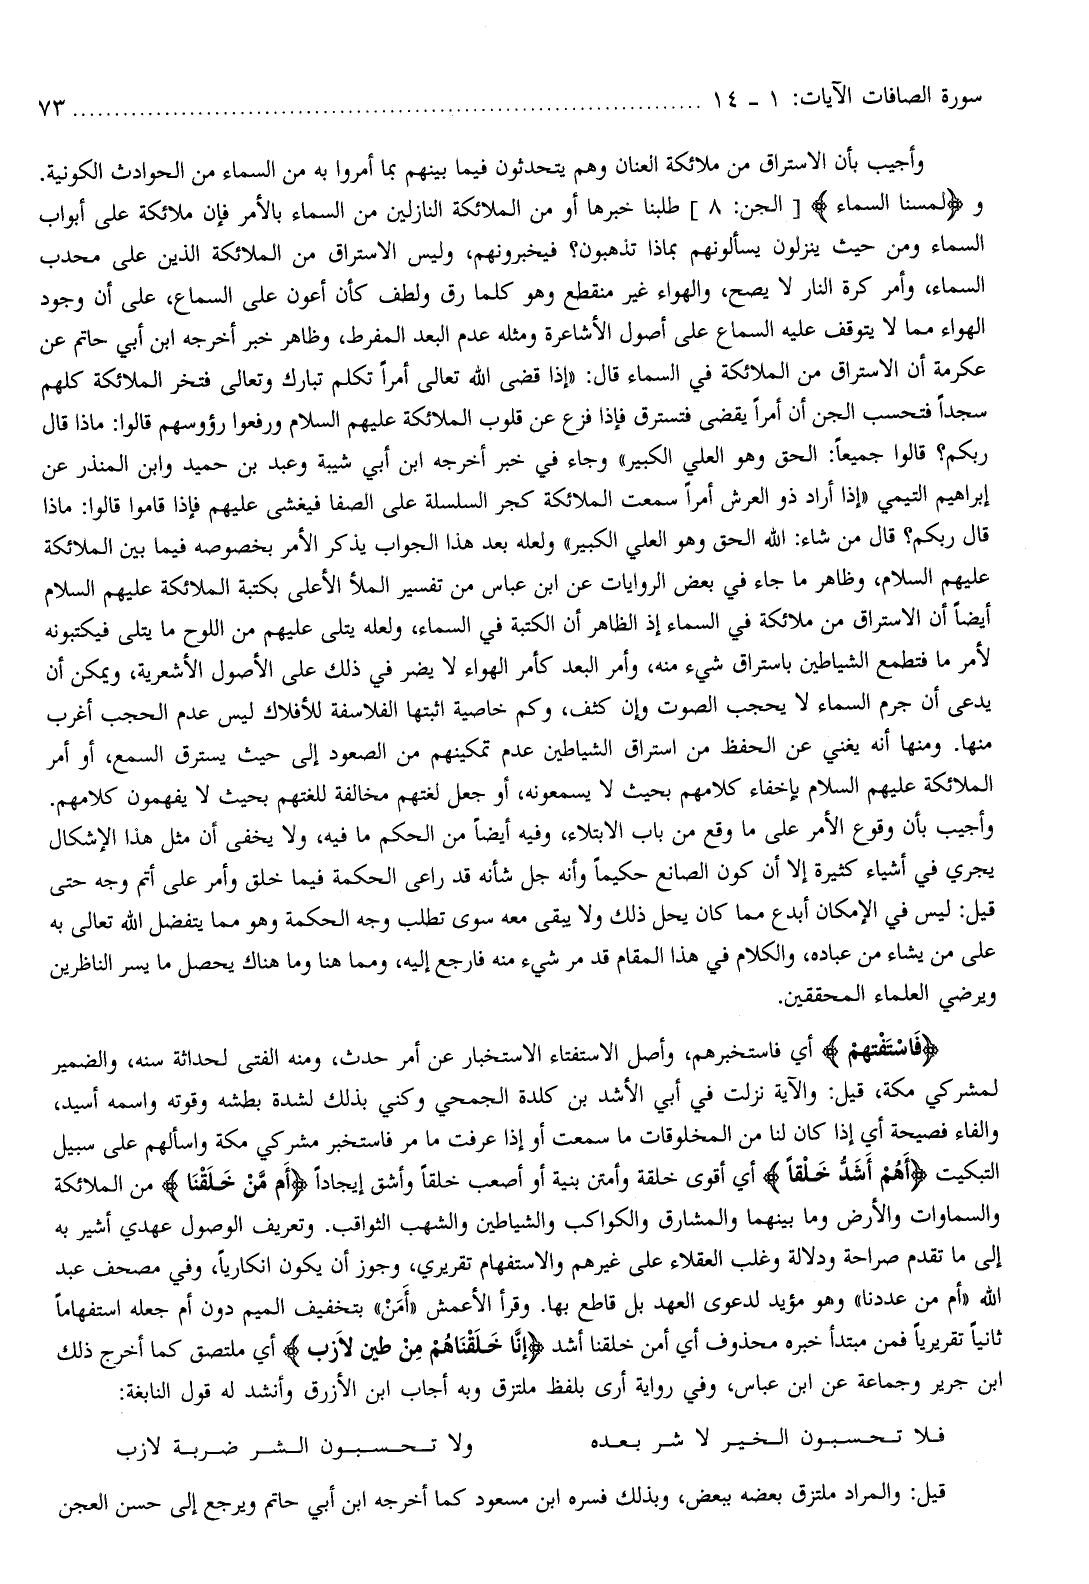 سورة الصافات الآيات: ١ - ١٤ ........................................................................ ٧٣
وأجيب بأن الاستراق من ملائكة العنان وهم يتحدثون فيما بينهم بما أمروا به من السماء من الحوادث الكونية.
و ﴿لمسنا السماء ﴾ [ الجن: ٨ ] طلبنا خبرها أو من الملائكة النازلين من السماء بالأمر فإن ملائكة على أبواب
السماء ومن حيث ينزلون يسألونهم بماذا تذهبون؟ فيخبرونهم، وليس الاستراق من الملائكة الذين على محدب
السماء، وأمر كرة النار لا يصح، والهواء غير منقطع وهو كلما رق ولطف كأن أعون على السماع، على أن وجود
الهواء مما لا يتوقف عليه السماع على أصول الأشاعرة ومثله عدم البعد المفرط، وظاهر خبر أخرجه ابن أبي حاتم عن
عكرمة أن الاستراق من الملائكة في السماء قال: «إذا قضى الله تعالى أمراً تكلم تبارك وتعالى فتخر الملائكة كلهم
سجداً فتحسب الجن أن أمراً يقضى فتسترق فإذا فزع عن قلوب الملائكة عليهم السلام ورفعوا رؤوسهم قالوا: ماذا قال
ربكم؟ قالوا جميعاً: الحق وهو العلي الكبير» وجاء في خبر أخرجه ابن أبي شيبة وعبد بن حميد وابن المنذر عن
إبراهيم التيمي «إذا أراد ذو العرش أمراً سمعت الملائكة كجر السلسلة على الصفا فيغشى عليهم فإذا قاموا قالوا: ماذا
قال ربكم؟ قال من شاء: الله الحق وهو العلي الكبير» ولعله بعد هذا الجواب يذكر الأمر بخصوصه فيما بين الملائكة
عليهم السلام، وظاهر ما جاء في بعض الروايات عن ابن عباس من تفسير الملأ الأعلى بكتبة الملائكة عليهم السلام
أيضاً أن الاستراق من ملائكة في السماء إذ الظاهر أن الكتبة في السماء، ولعله يتلى عليهم من اللوح ما يتلى فيكتبونه
لأمر ما فتطمع الشياطين باستراق شيء منه، وأمر البعد كأمر الهواء لا يضر في ذلك على الأصول الأشعرية، ويمكن أن
يدعى أن جرم السماء لا يحجب الصوت وإن كثف، وكم خاصية اثبتها الفلاسفة للأفلاك ليس عدم الحجب أغرب
منها. ومنها أنه يغني عن الحفظ من استراق الشياطين عدم تمكينهم من الصعود إلى حيث يسترق السمع، أو أمر
الملائكة عليهم السلام بإخفاء كلامهم بحيث لا يسمعونه، أو جعل لغتهم مخالفة للغتهم بحيث لا يفهمون كلامهم.
وأجيب بأن وقوع الأمر على ما وقع من باب الابتلاء، وفيه أيضاً من الحكم ما فيه، ولا يخفى أن مثل هذا الإشكال
يجري في أشياء كثيرة إلا أن كون الصانع حكيماً وأنه جل شأنه قد راعى الحكمة فيما خلق وأمر على أتم وجه حتى
قيل: ليس في الإمكان أبدع مما كان يحل ذلك ولا يبقى معه سوى تطلب وجه الحكمة وهو مما يتفضل الله تعالى به
على من يشاء من عباده، والكلام في هذا المقام قد مر شيء منه فارجع إليه، ومما هنا وما هناك يحصل ما يسر الناظرين
ويرضي العلماء المحققين.
﴿فَاسْتَفْتهِمْ ﴾ أي فاستخبرهم، وأصل الاستفتاء الاستخبار عن أمر حدث، ومنه الفتى لحداثة سنه، والضمير
لمشركي مكة، قيل: والآية نزلت في أبي الأشد بن كلدة الجمحي وكني بذلك لشدة بطشه وقوته واسمه أسيد،
والفاء فصيحة أي إذا كان لنا من المخلوقات ما سمعت أو إذا عرفت ما مر فاستخبر مشركي مكة واسألهم على سبيل
التبكيت ﴿أَهُمْ أَشَدُّ خَلْقاً ﴾ أي أقوى خلقة وأمتن بنية أو أصعب خلقاً وأشق إيجاداً ﴿أَم مَّنْ خَلَقْنَا ﴾ من الملائكة
والسماوات والأرض وما بينهما والمشارق والكواكب والشياطين والشهب الثواقب. وتعريف الوصول عهدي أشير به
إلى ما تقدم صراحة ودلالة وغلب العقلاء على غيرهم والاستفهام تقريري، وجوز أن يكون انكارياً، وفي مصحف عبد
الله «أم من عددنا» وهو مؤيد لدعوى العهد بل قاطع بها. وقرأ الأعمش «أَمَنْ» بتخفيف الميم دون أم جعله استفهاماً
ثانياً تقريرياً فمن مبتدأ خبره محذوف أي أمن خلقنا أشد ﴿إنَّا خَلَقْنَاهُمْ مِنْ طين لاَزب ﴾ أي ملتصق كما أخرج ذلك
ابن جرير وجماعة عن ابن عباس، وفي رواية أرى بلفظ ملتزق وبه أجاب ابن الأزرق وأنشد له قول النابغة:
فلا تحسبون الخير لا شر بعده ولا تحسبون الشر ضربة لازب
قيل: والمراد ملتزق بعضه ببعض، وبذلك فسره ابن مسعود كما أخرجه ابن أبي حاتم ويرجع إلى حسن العجن